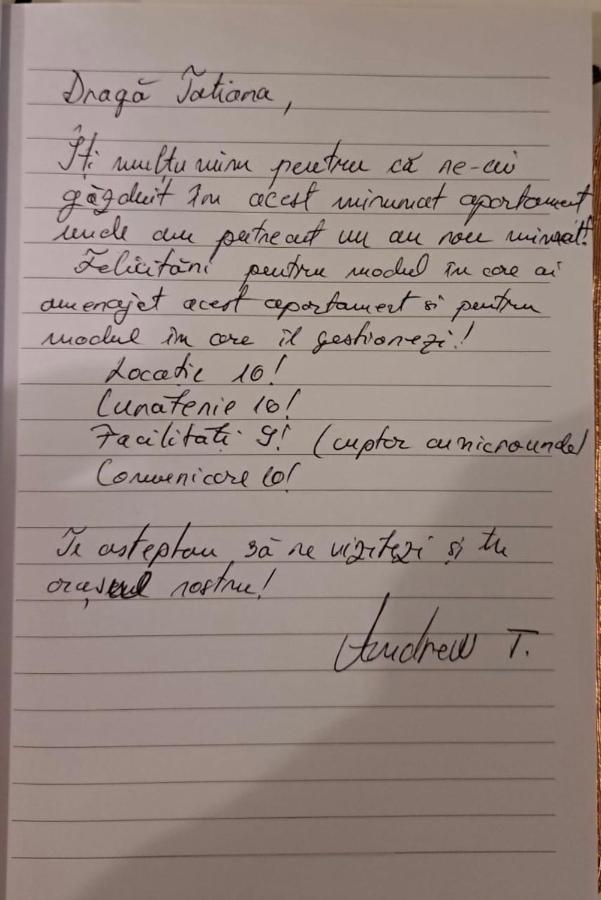 Dragă Tatiana,
Îți mulțumim pentru că ne-ai
găzduit în acest minunat apartament
unde am petrecut un an nou minunat!
Felicitări pentru modul în care ai
amenajat acest apartament si pentru
modul în care îl gestionezi!
Locație 10!
Curățenie 10!
Facilitati 9! (cuptor cu microunde)
Comunicare 10!
Te asteptam să ne vizitezi și tu
orașul nostru!
Andrew T.